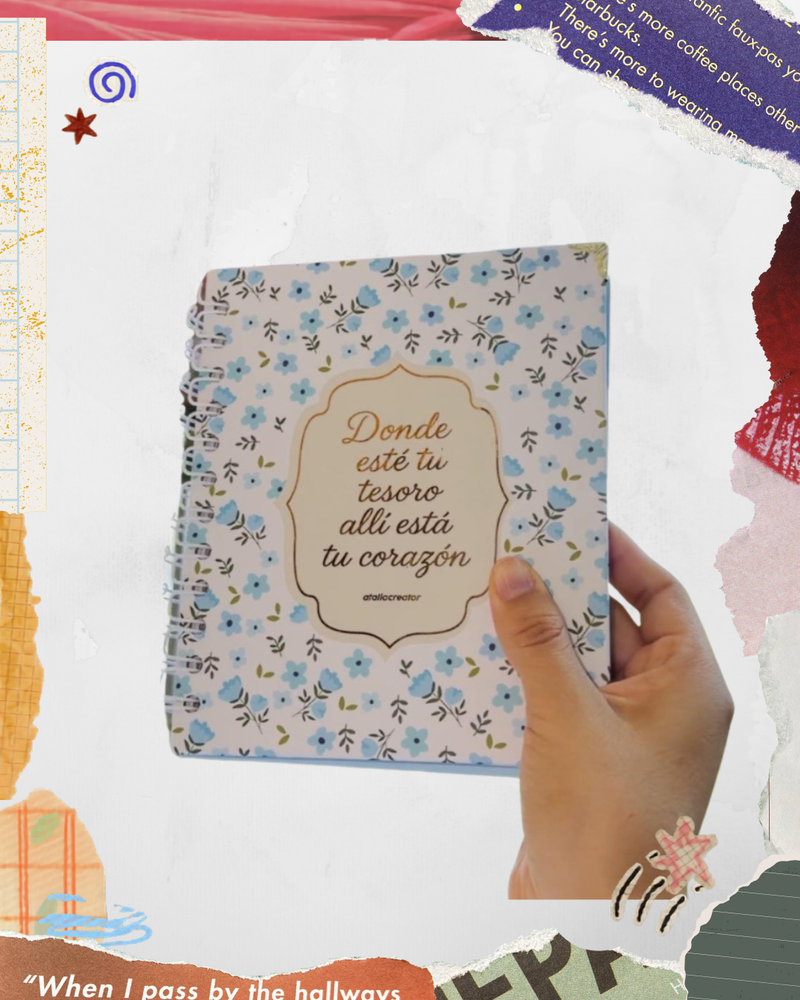 There's more coffee places other
arbucks.
There's more to wearing
You can
Donde
esté tu
tesoro
allí está
tu corazón
ataliocreator
"When I pass by the hallways